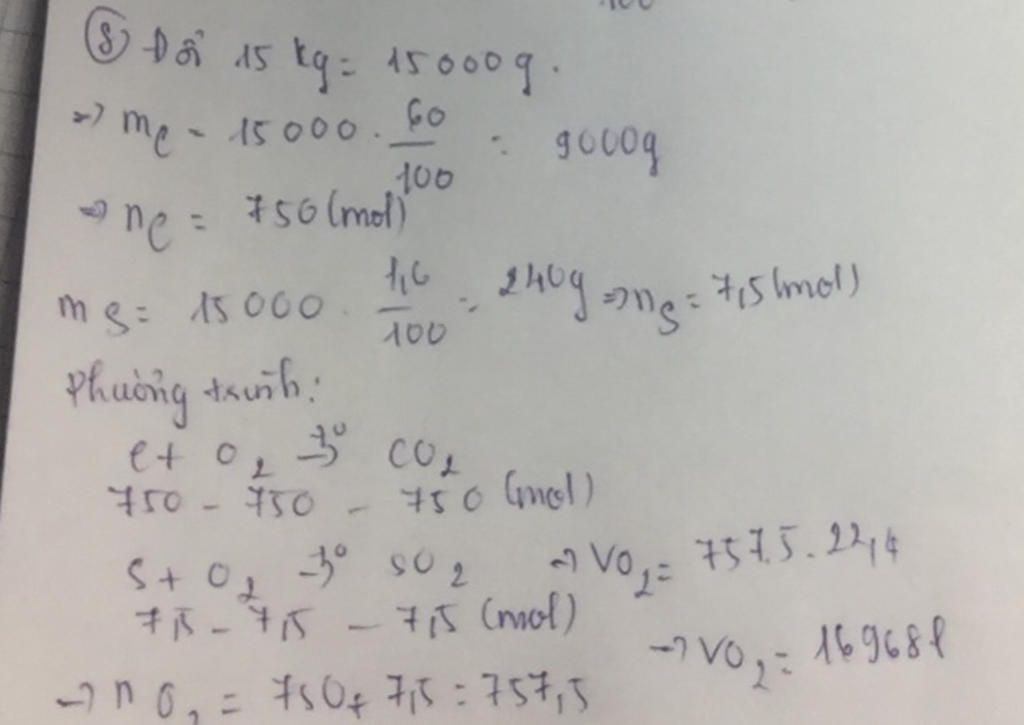 ⑧ Đổi 15 kg = 15000g.
=> mC = 15000 . 60/100 = 9000g
=> nC = 750 (mol)
mS = 15000 . 1,6/100 = 240g => nS = 7,5 (mol)
Phương trình:
C + O2 -t°-> CO2
750 - 750 - 750 (mol)
S + O2 -t°-> SO2 -> VO2 = 757,5 . 22,4
7,5 - 7,5 - 7,5 (mol)
-> VO2 = 16968l
-> nO2 = 750 + 7,5 = 757,5